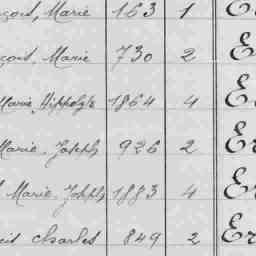 çois, Marie 163 1 E
çois, Marie 730 2 E
Marie Hippolyte 1864 4 E
Marie Joseph 926 2 Er
Marie Joseph 1883 4 Er
cis Charles 849 2 Er